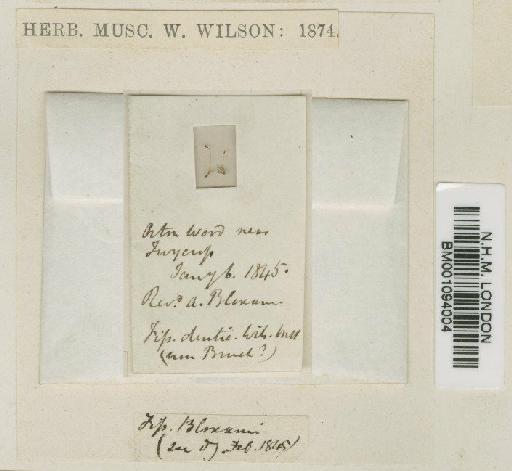 HERB. MUSC. W. WILSON: 1874.
Orton Wood near
Twycross
Jany 6. 1845.
Revd. A. Bloxam
Fiss. dentic. Wils. mst
(non Bruch?)
Fiss. Bloxami
Feb. 1845)
N.H.M. LONDON
BM001094004